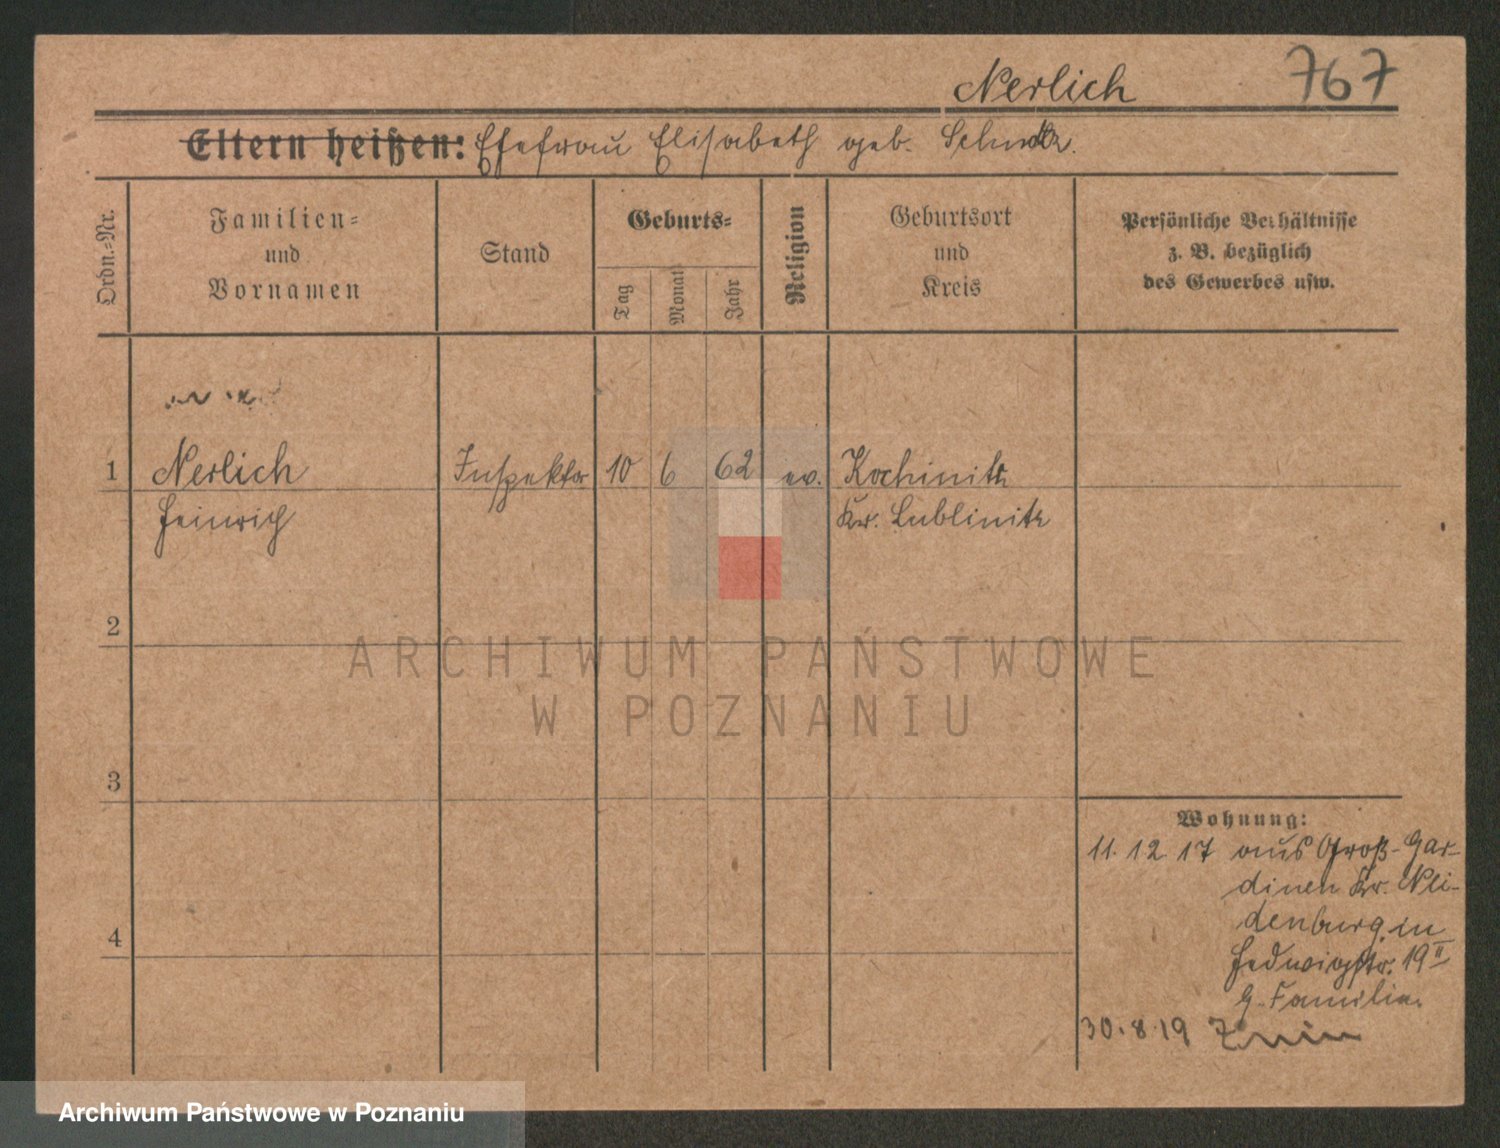 Nerlich 767
Eltern heißen: Ehefrau Elisabeth geb.
Ordn.-Nr.
Familien-
und
Vornamen
Stand
Geburts-
Tag
Monat
Jahr
Religion
Geburtsort
und
Kreis
Persönliche Verhältnisse
z. B. bezüglich
des Gewerbes usw.
1 Nerlich Inspektor 10 6 62 ev. Kochinitz
Heinrich Kr. Lublinitz
2
3
4
Wohnung:
11. 12. 17 aus Groß-Gar-
dinen Kr. Nei-
denburg in
Hedwigstr. 19 II
G. Familie.
30.8.19 Znin
ARCHIWUM PAŃSTWOWE
W POZNANIU
Archiwum Państwowe w Poznaniu